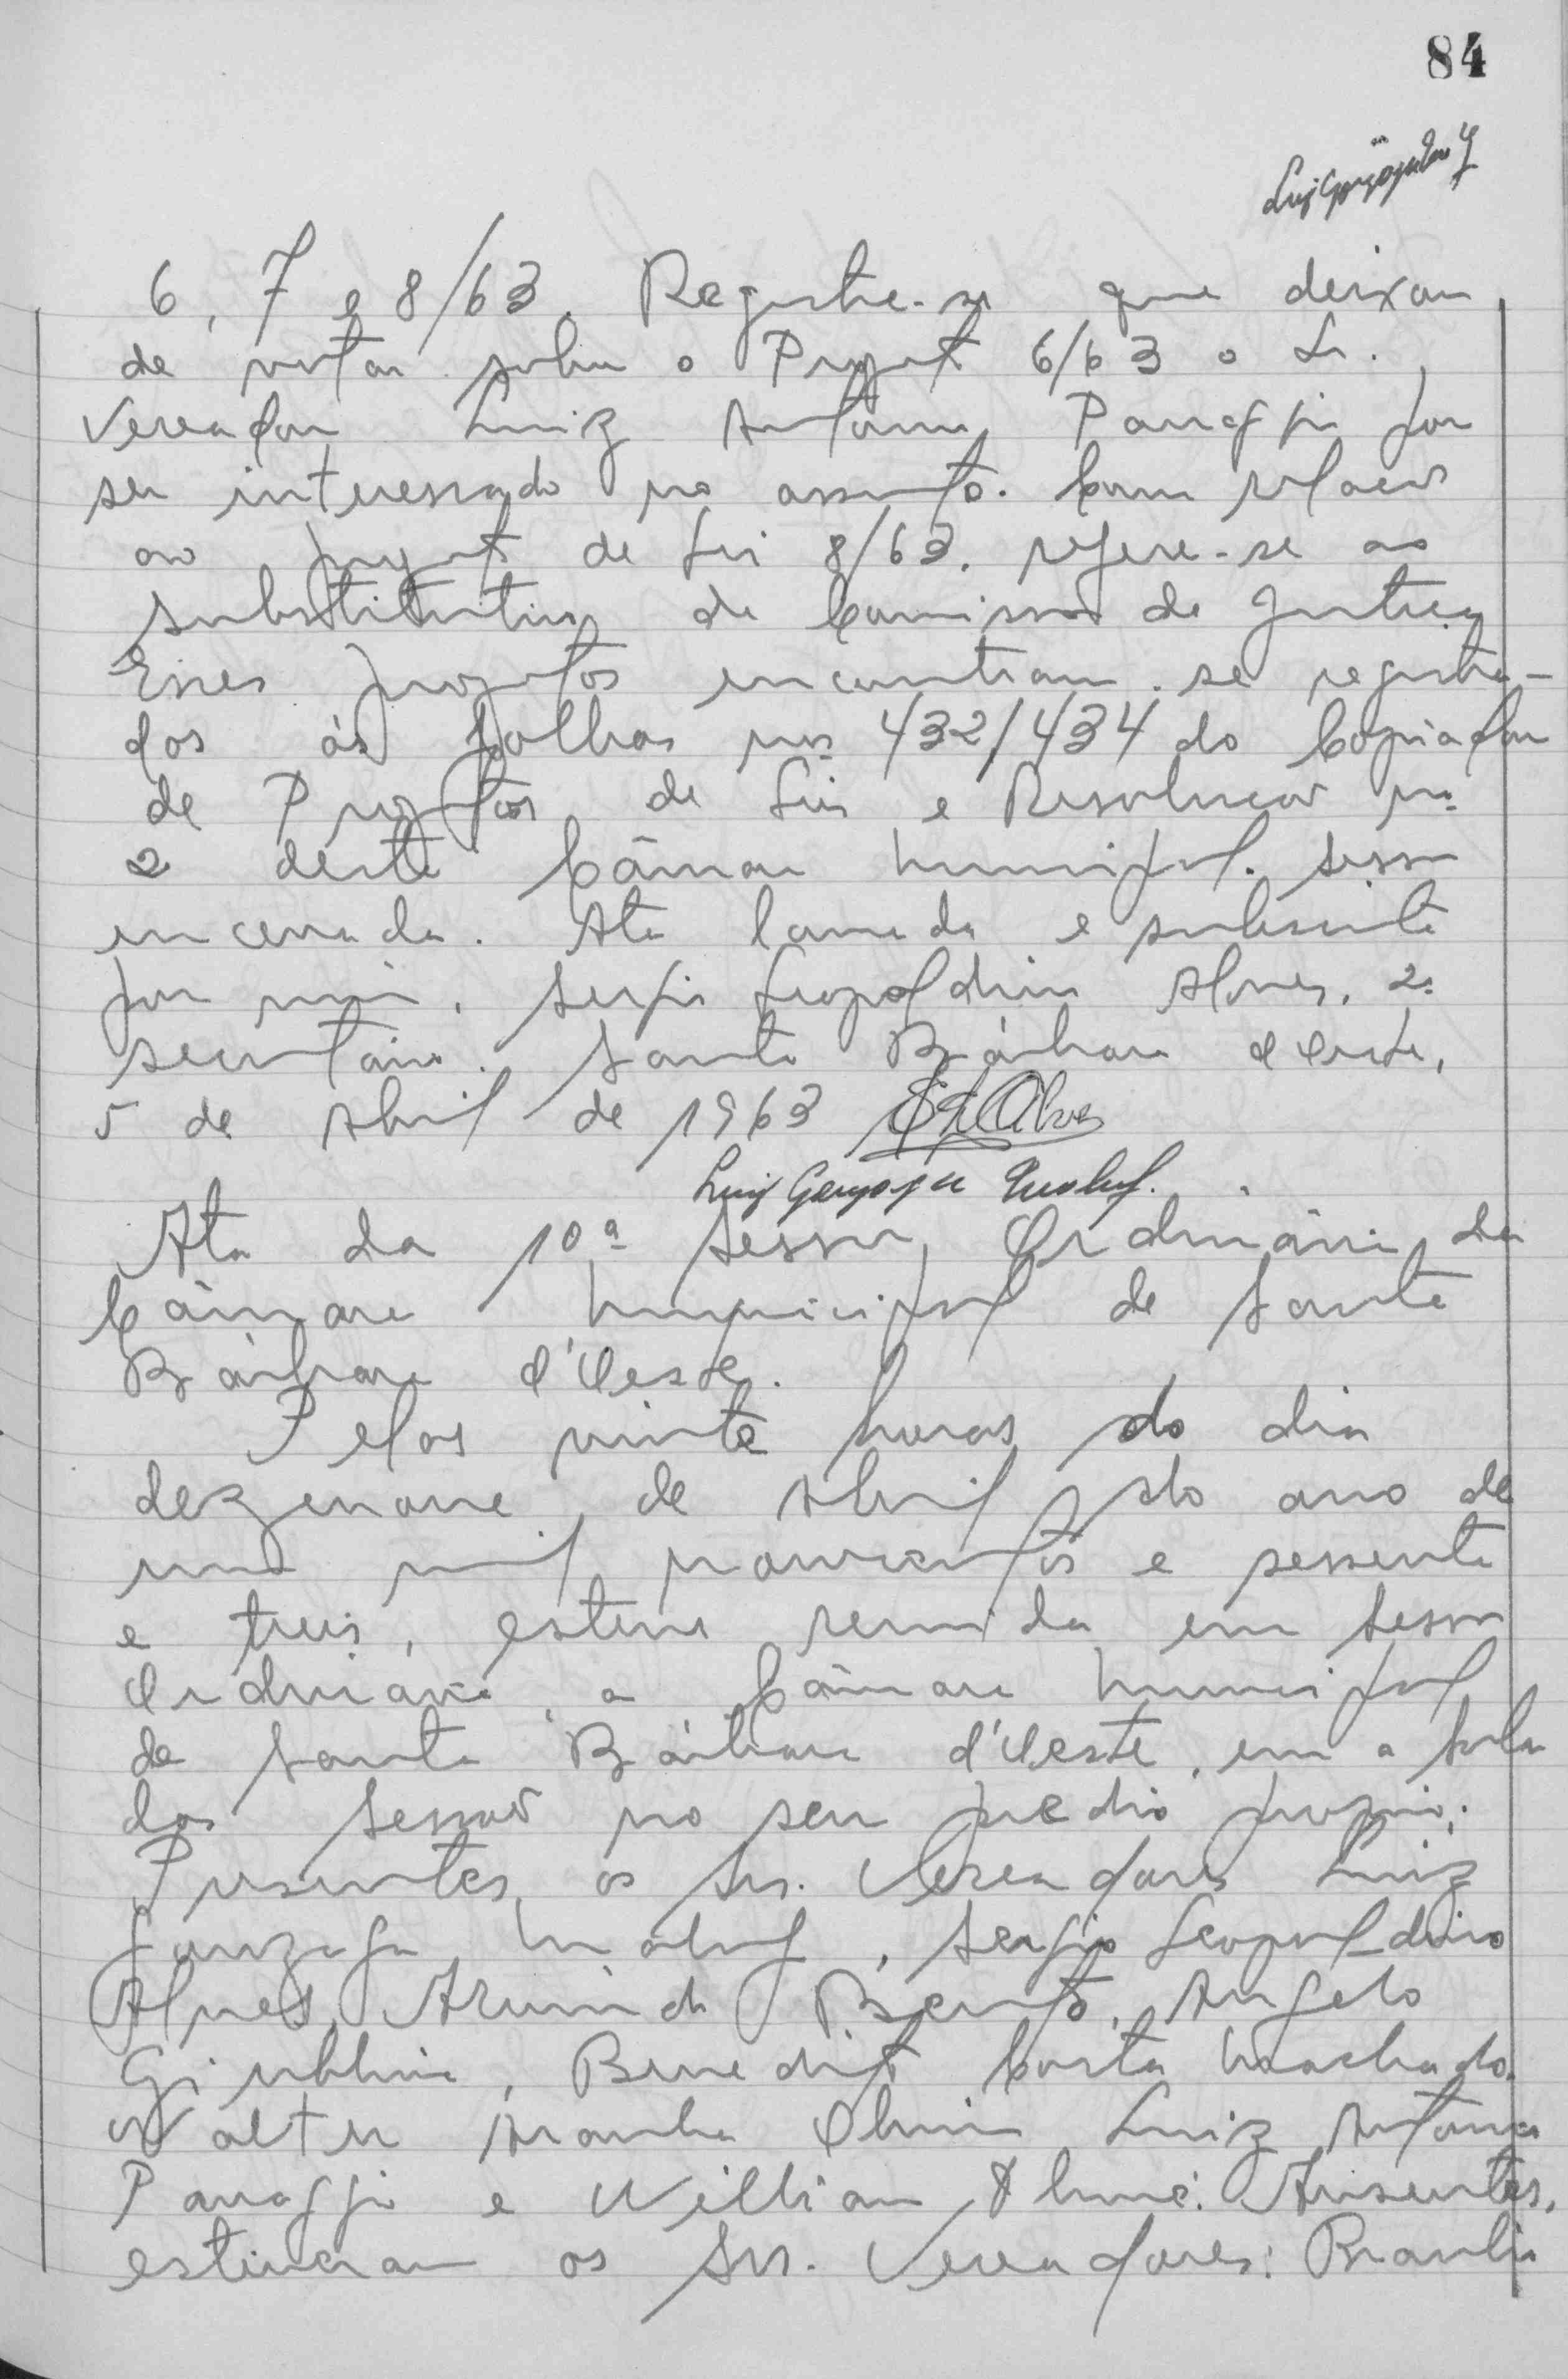 84
6, 7 e 8/63. Registre-se que deixou
de votar sobre o Projeto 6/63 o Sr.
Vereador Luiz Antonio Panaggio por
ser interessado no assunto. Com relação
ao projeto de Lei 8/63, refere-se ao
substitutivo da Comissão de Justiça
Esses projetos encontram-se registra-
dos às folhas nos 432/434 do Copiador
de Projetos de Leis e Resoluções nº
2 desta Câmara Municipal. Sessão
encerrada. Ata lavrada e subscrita
por mim, Sergio Leopoldino Alves, 2º
secretário. Santa Bárbara d'Oeste,
5 de Abril de 1963
Ata da 10ª Sessão Ordinária da
Câmara Municipal de Santa
Bárbara d'Oeste.
Pelas vinte horas do dia
dezenove de Abril do ano de
um mil novecentos e sessenta
e treis, esteve reunida em Sessão
Ordinária, a Câmara Municipal
de Santa Bárbara d'Oeste, em a sala
das Sessões no seu predio proprio.
Presentes os Srs. Vereadores Luiz
Gonzaga Maluf, Sergio Leopoldino
Alves, Arlindo Bento, Angelo
Giubbina, Benedito Costa Machado,
Walter Luiz Antonio
Panaggio e Willian Ausentes,
estiveram os Srs. Vereadores: Braulio